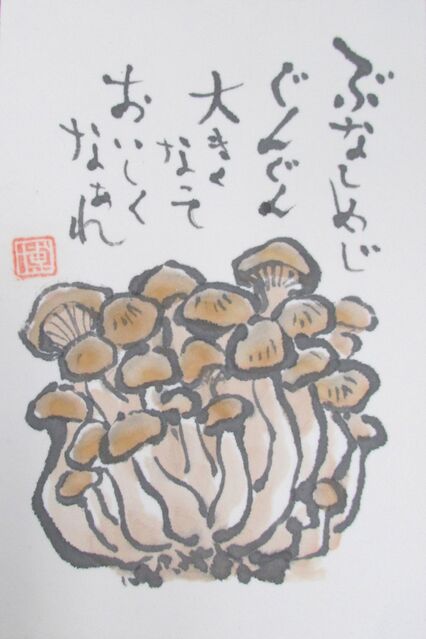 ぶなしめじ
ぐんぐん
大きく
なって
おいしく
なぁれ